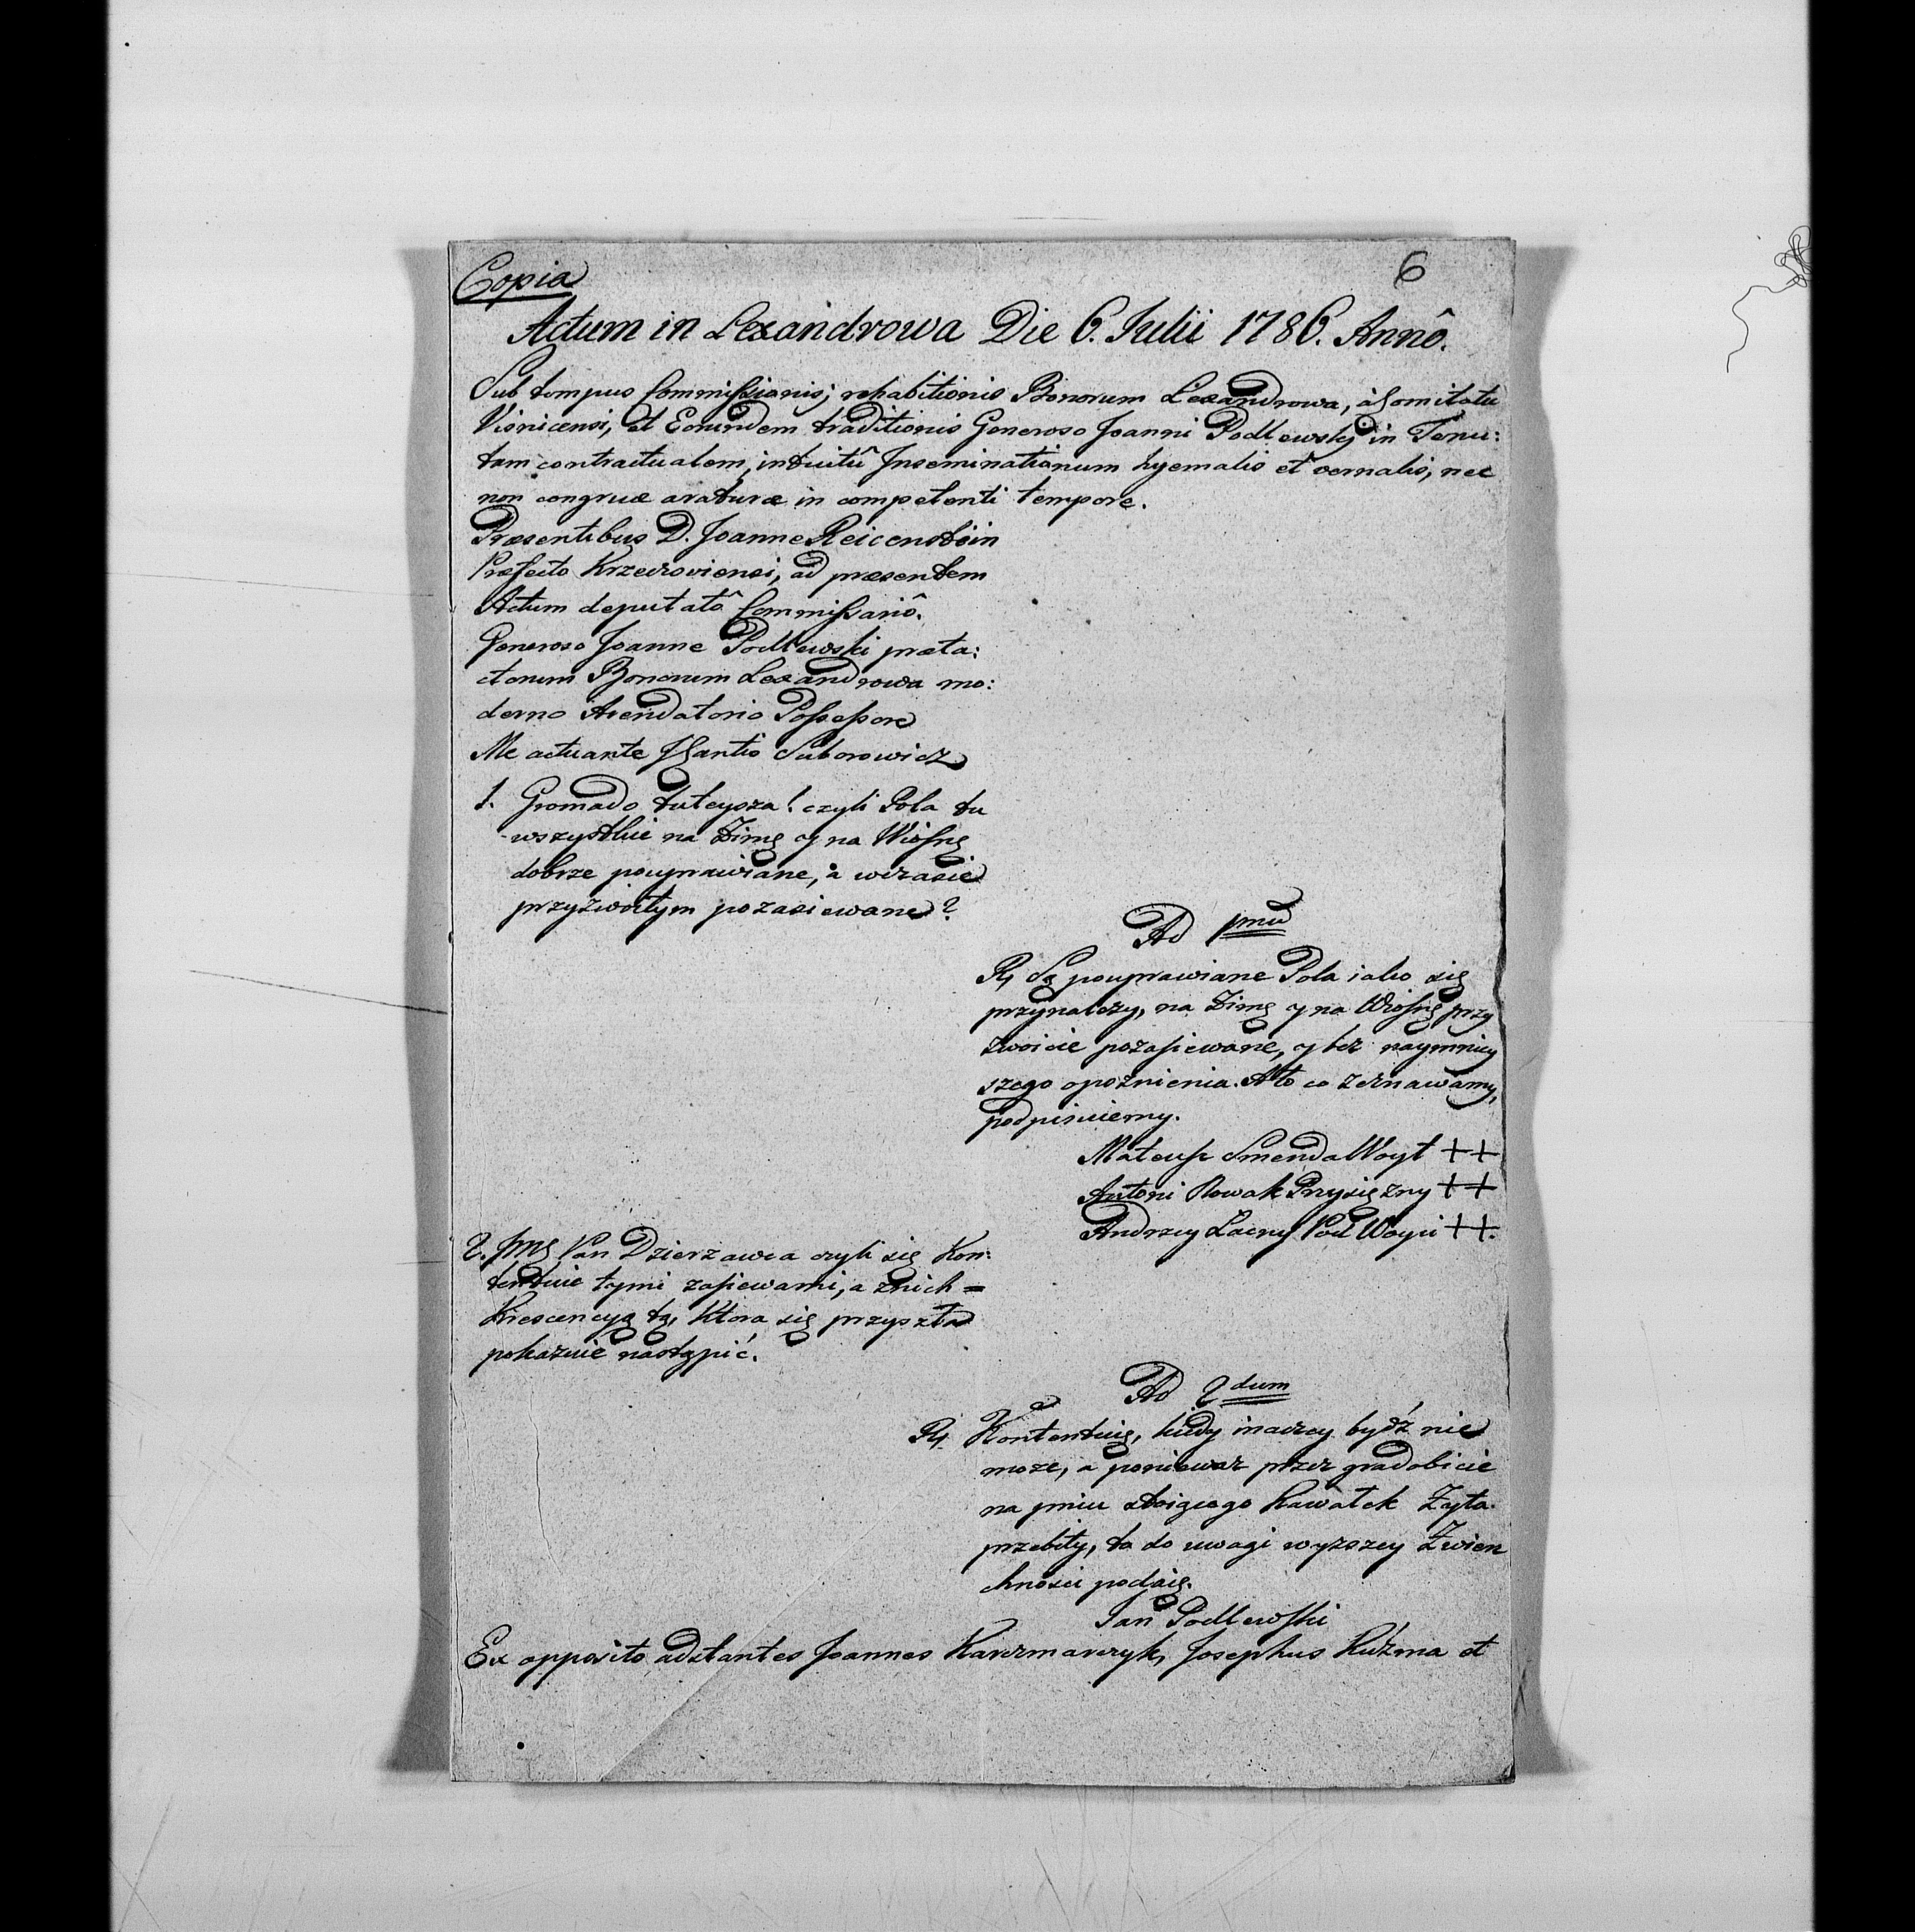 Copia
6
Actum in Lexandrowa Die 6. Julii 1786. Annô.
Sub tempus Commissionis; rehabitionis Bonorum Lexandrowa, à Comitatu
Visnicensi, et Eorundem traditionis Generoso Joanni Podlewsky in Tenu:
tam contractualem, intuitû Inseminationum hyemalis et vernalis, nec
non congruæ araturæ in competenti tempore.
Præsentibus D. Joanne Reicenstein
Præfecto Krzeczoviensi, ad præsentem
Actum deputatô Commissariô.
Generoso Joanne Podlewski præta:
ctorum Bonorum Lexandrowa mo:
derno Arendatorio Possessore
Me actuante Suborowicz
1. Gromado tuteysza! czyli Pola tu
wszystkie na Zimę y na Wiosnę
dobrze pouprawiane, à wczasie
przyzwoitym pozasiewane?
Ad pmū
R. Są pouprawiane Pola iako się
przynależy, na Zimę y na Wiosnę przy
zwoicie pozasiewane, y bez naymniey
szego opoznienia. A to co zeznawamy,
podpisuiemy.
Mateusz Smenda Woyt ++
Antoni Nowak Przysięzny ++
Andrzey Łacny Pod Woyci ++.
2. Jmę Pan Dzierzawca czyli się Kon:
tentuie tymi zasiewami, a znich =
Krescencyą tą, Ktora się przyszła
pokazuie nastąpić.
Ad 2dum
R. Kontentuię, kiedy inaczey bydź nie
moze, a poniewaz przez gradobicie
na pniu stoiącego kawałek Zyta
przebity, to do uwagi wyzszey Zwierz
chności podaię.
Jan Podlewski
Ex opposito adstantes Joannes Karczmarczyk, Josephus Kuźma et